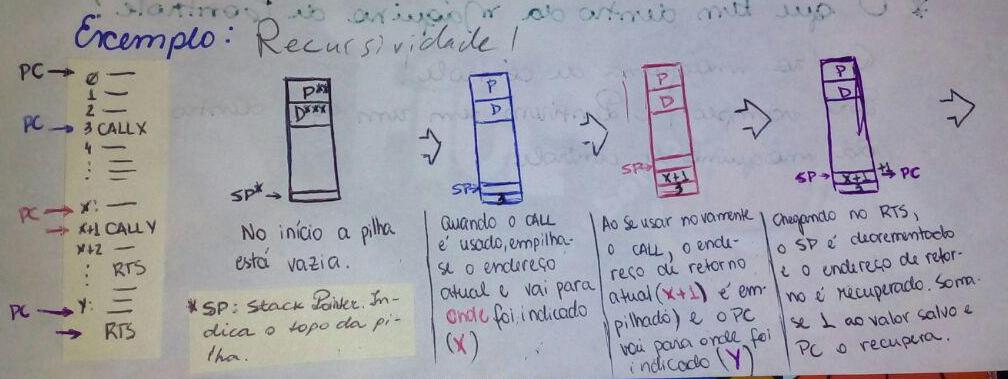 Exemplo: Recursividade!
PC → 0 —
1 —
2 —
PC → 3 CALL X
4 —
PC → X: —
→ X+1 CALL Y
X+2 —
: RTS
PC → Y: —
→ RTS
P**
D***
SP* →
No início a pilha
está vazia.
* SP: Stack Pointer. In-
dica o topo da pi-
lha.
P
D
SP →
3
Quando o CALL
é usado, empilha-
se o endereço
atual e vai para
onde foi indicado
(X)
P
D
SP →
X+1
3
Ao se usar novamente
o CALL, o ende-
reço de retorno
atual (X+1) é em-
pilhado) e o PC
vai para onde foi
indicado (Y)
P
D
SP →
X+1 +1 → PC
3
Chegando no RTS,
o SP é decrementado
e o endereço de retor-
no é recuperado. Soma-
se 1 ao valor salvo e
PC o recupera.